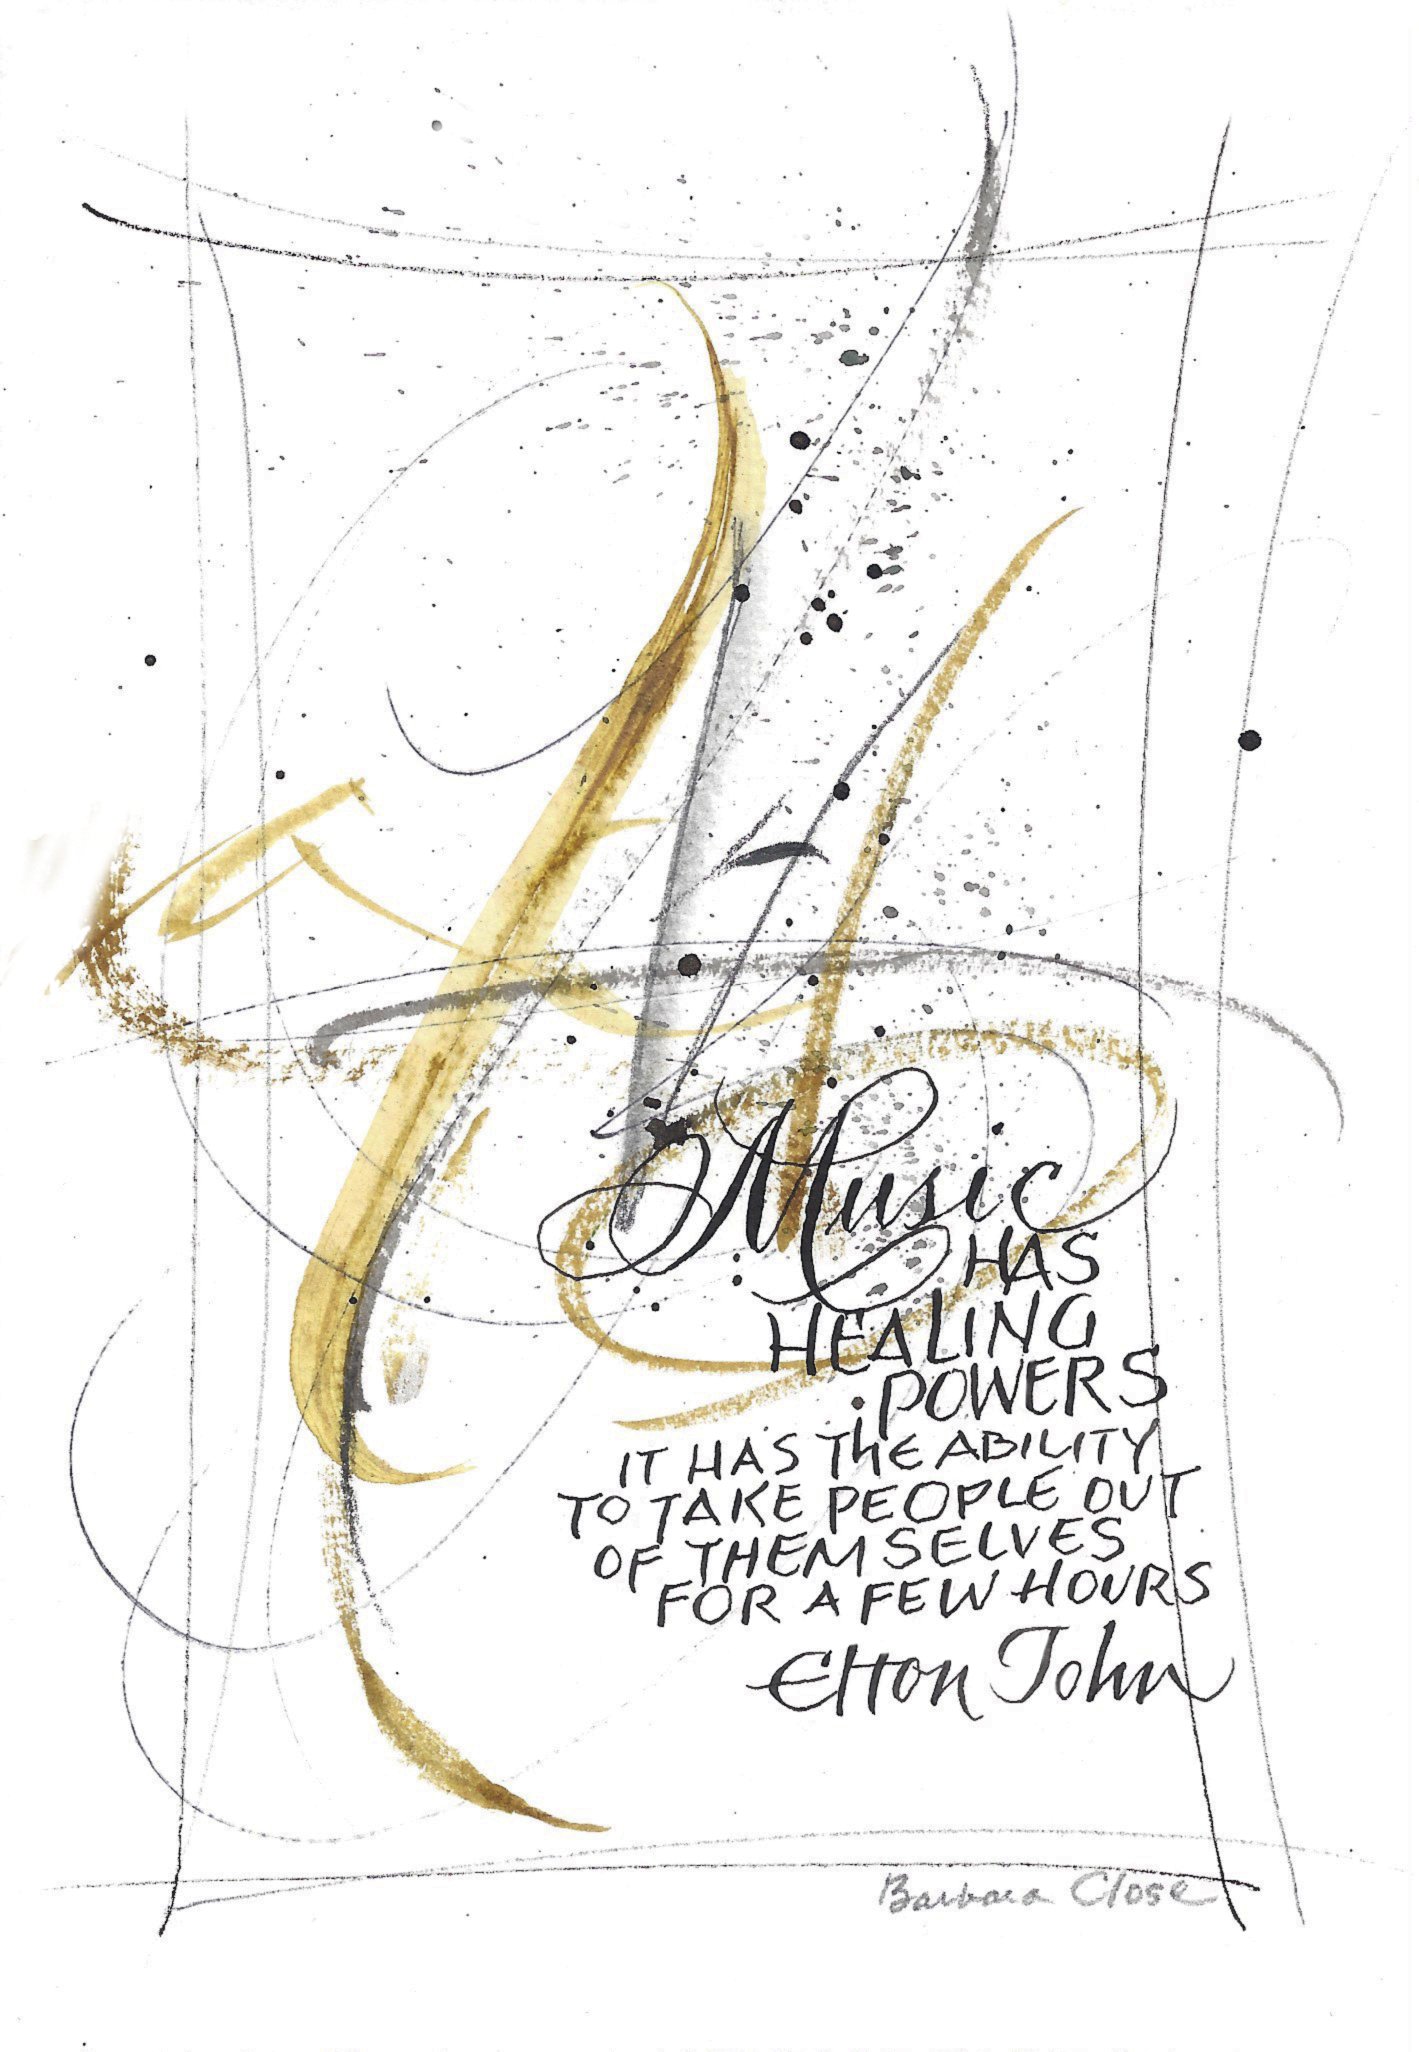 Music
HAS
HEALING
POWERS
IT HAS THE ABILITY
TO TAKE PEOPLE OUT
OF THEMSELVES
FOR A FEW HOURS
Elton John
Barbara Close